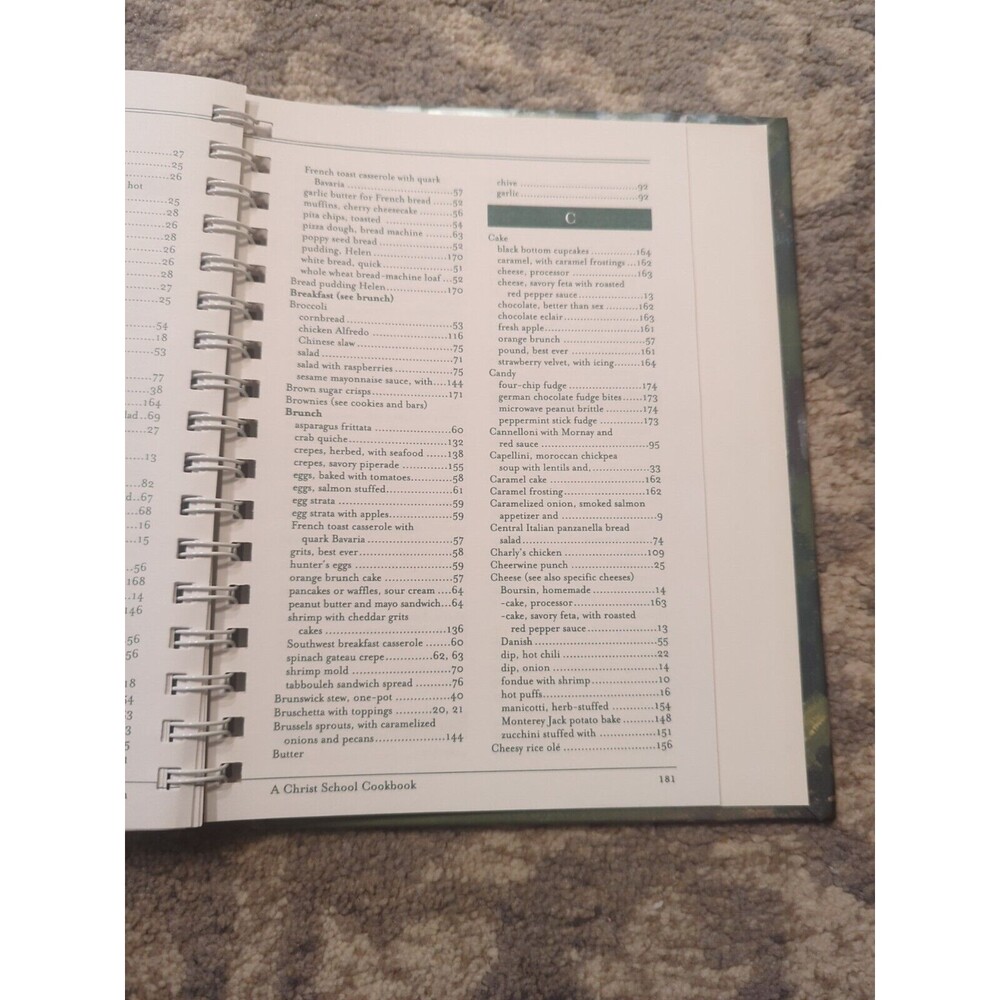 27
25
26
hot
25
28
26
28
26
26
28
27
25
54
18
53
77
38
164
lad..69
27
13
82
d..67
68
16
15
56
168
14
146
56
56
18
54
3
3
5
French toast casserole with quark
Bavaria ..............................57
garlic butter for French bread .....52
muffins, cherry cheesecake .........56
pita chips, toasted ...................54
pizza dough, bread machine .......63
poppy seed bread ....................52
pudding, Helen.....................170
white bread, quick....................51
whole wheat bread-machine loaf ...52
Bread pudding Helen................170
Breakfast (see brunch)
Broccoli
cornbread .............................53
chicken Alfredo .....................116
Chinese slaw...........................75
salad ....................................71
salad with raspberries ...............75
sesame mayonnaise sauce, with....144
Brown sugar crisps....................171
Brownies (see cookies and bars)
Brunch
asparagus frittata ....................60
crab quiche...........................132
crepes, herbed, with seafood ......138
crepes, savory piperade ............155
eggs, baked with tomatoes..........58
eggs, salmon stuffed..................61
egg strata ..............................59
egg strata with apples................59
French toast casserole with
quark Bavaria ......................57
grits, best ever........................58
hunter's eggs .........................59
orange brunch cake .................57
pancakes or waffles, sour cream ....64
peanut butter and mayo sandwich...64
shrimp with cheddar grits
cakes ...............................136
Southwest breakfast casserole .......60
spinach gateau crepe............62, 63
shrimp mold ..........................70
tabbouleh sandwich spread .........76
Brunswick stew, one-pot ..............40
Bruschetta with toppings .........20, 21
Brussels sprouts, with caramelized
onions and pecans...................144
Butter
chive ...................................92
garlic ...................................92
C
Cake
black bottom cupcakes ............164
caramel, with caramel frostings ...162
cheese, processor ...................163
cheese, savory feta with roasted
red pepper sauce...................13
chocolate, better than sex .........162
chocolate eclair......................163
fresh apple............................161
orange brunch ........................57
pound, best ever ....................161
strawberry velvet, with icing.......164
Candy
four-chip fudge .....................174
german chocolate fudge bites......173
microwave peanut brittle ..........174
peppermint stick fudge ............173
Cannelloni with Mornay and
red sauce ..............................95
Capellini, moroccan chickpea
soup with lentils and,................33
Caramel cake ..........................162
Caramel frosting.......................162
Caramelized onion, smoked salmon
appetizer and ..........................9
Central Italian panzanella bread
salad....................................74
Charly's chicken ......................109
Cheerwine punch ......................25
Cheese (see also specific cheeses)
Boursin, homemade .................14
-cake, processor.....................163
-cake, savory feta, with roasted
red pepper sauce...................13
Danish .................................55
dip, hot chili ..........................22
dip, onion .............................14
fondue with shrimp..................10
hot puffs...............................16
manicotti, herb-stuffed ............154
Monterey Jack potato bake ........148
zucchini stuffed with ...............151
Cheesy rice olé ........................156
A Christ School Cookbook
181